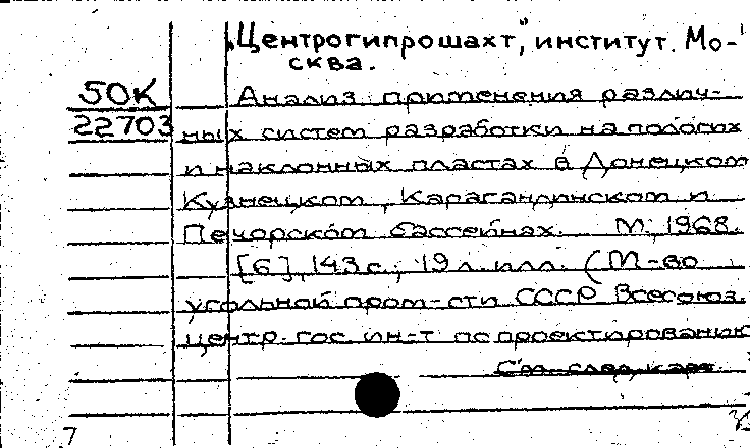 „Центрогипрошахт", институт. Мо-
сква.
50К
22703
Анализ применения различ-
ных систем разработки на пологих
и наклонных пластах в Донецком
Кузнецком, Карагандинском и
Печорском бассейнах. М., 1968.
[6], 143 с.; 19 л. илл. (М-во
угольной пром-сти СССР. Всесоюз.
центр. гос. ин-т по проектированию
См. след. карт.
7